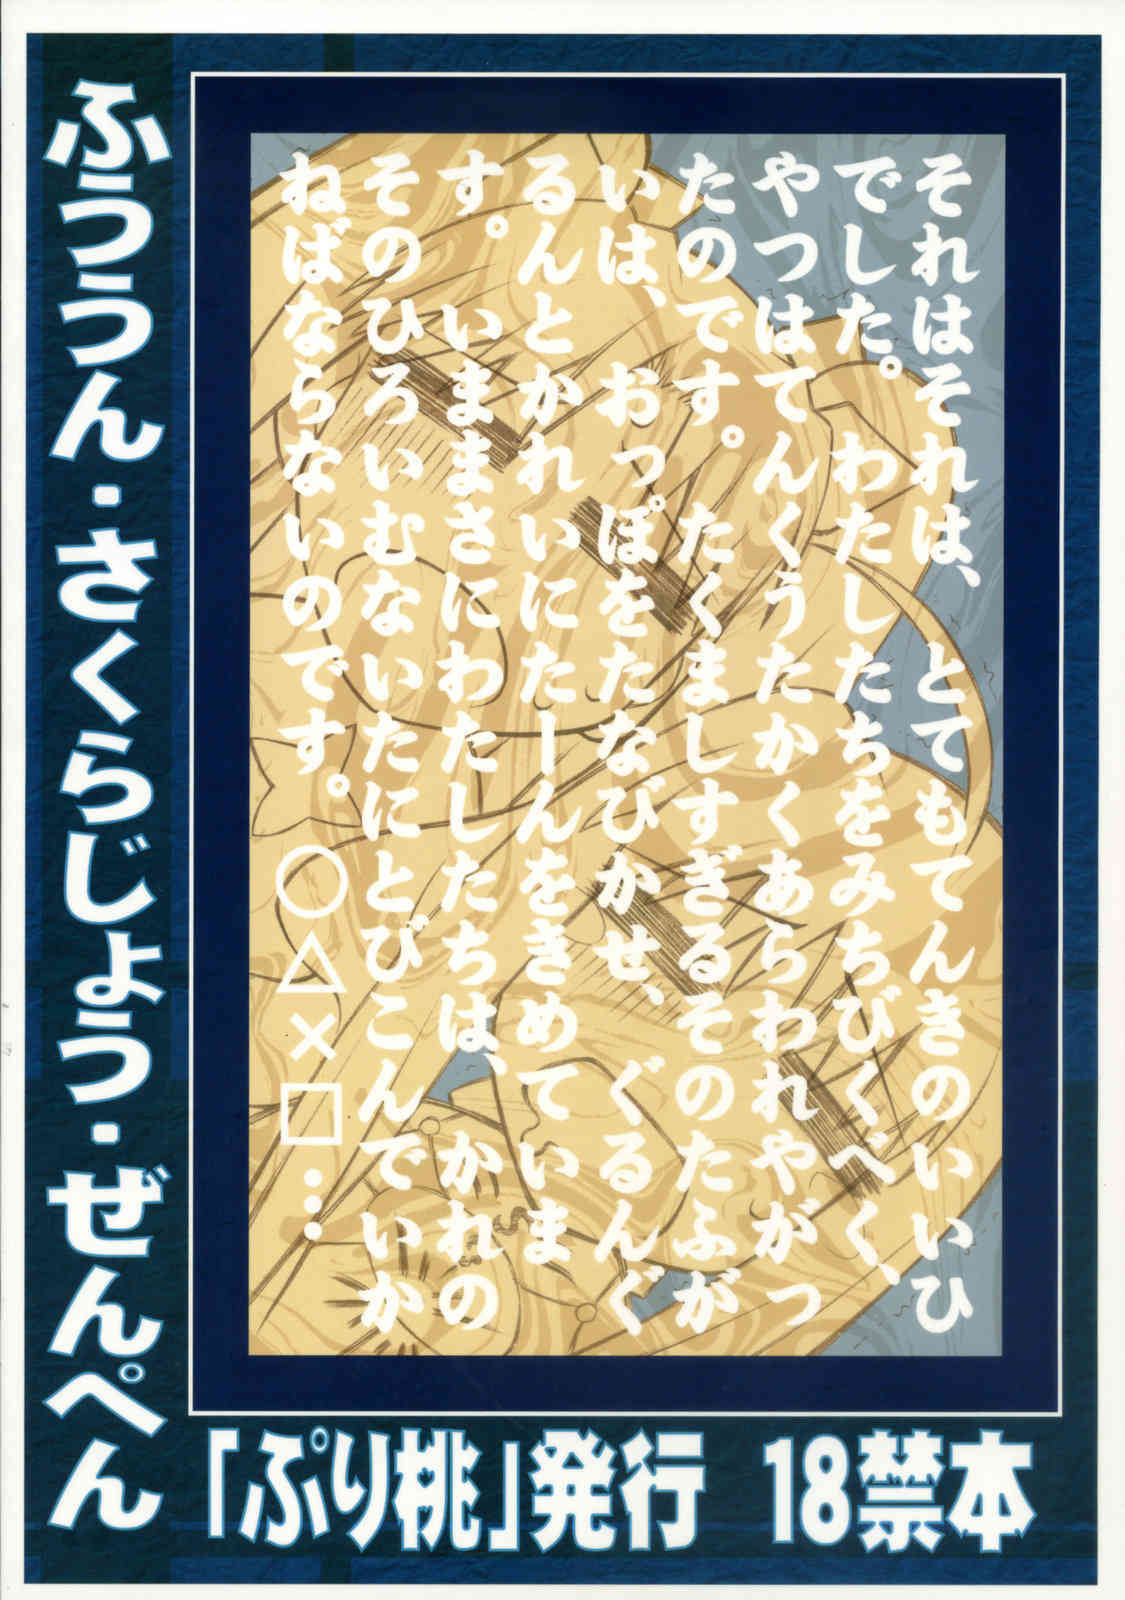 それはそれは、とてもてんきのいいひ
でした。わたしたちをみちびくべく、
やつはてんくうたかくあらわれやがっ
たのです。たくましすぎるそのたふが
いは、おっぽをたなびかせ、ぐるんぐ
るんとかれいにたーんをきめていま
す。いままさにわたしたちは、かれの
そのひろいむないたにとびこんでいか
ねばならないのです。○△×□…
ふううん・さくらじょう・ぜんぺん
「ぷり桃」発行 18禁本